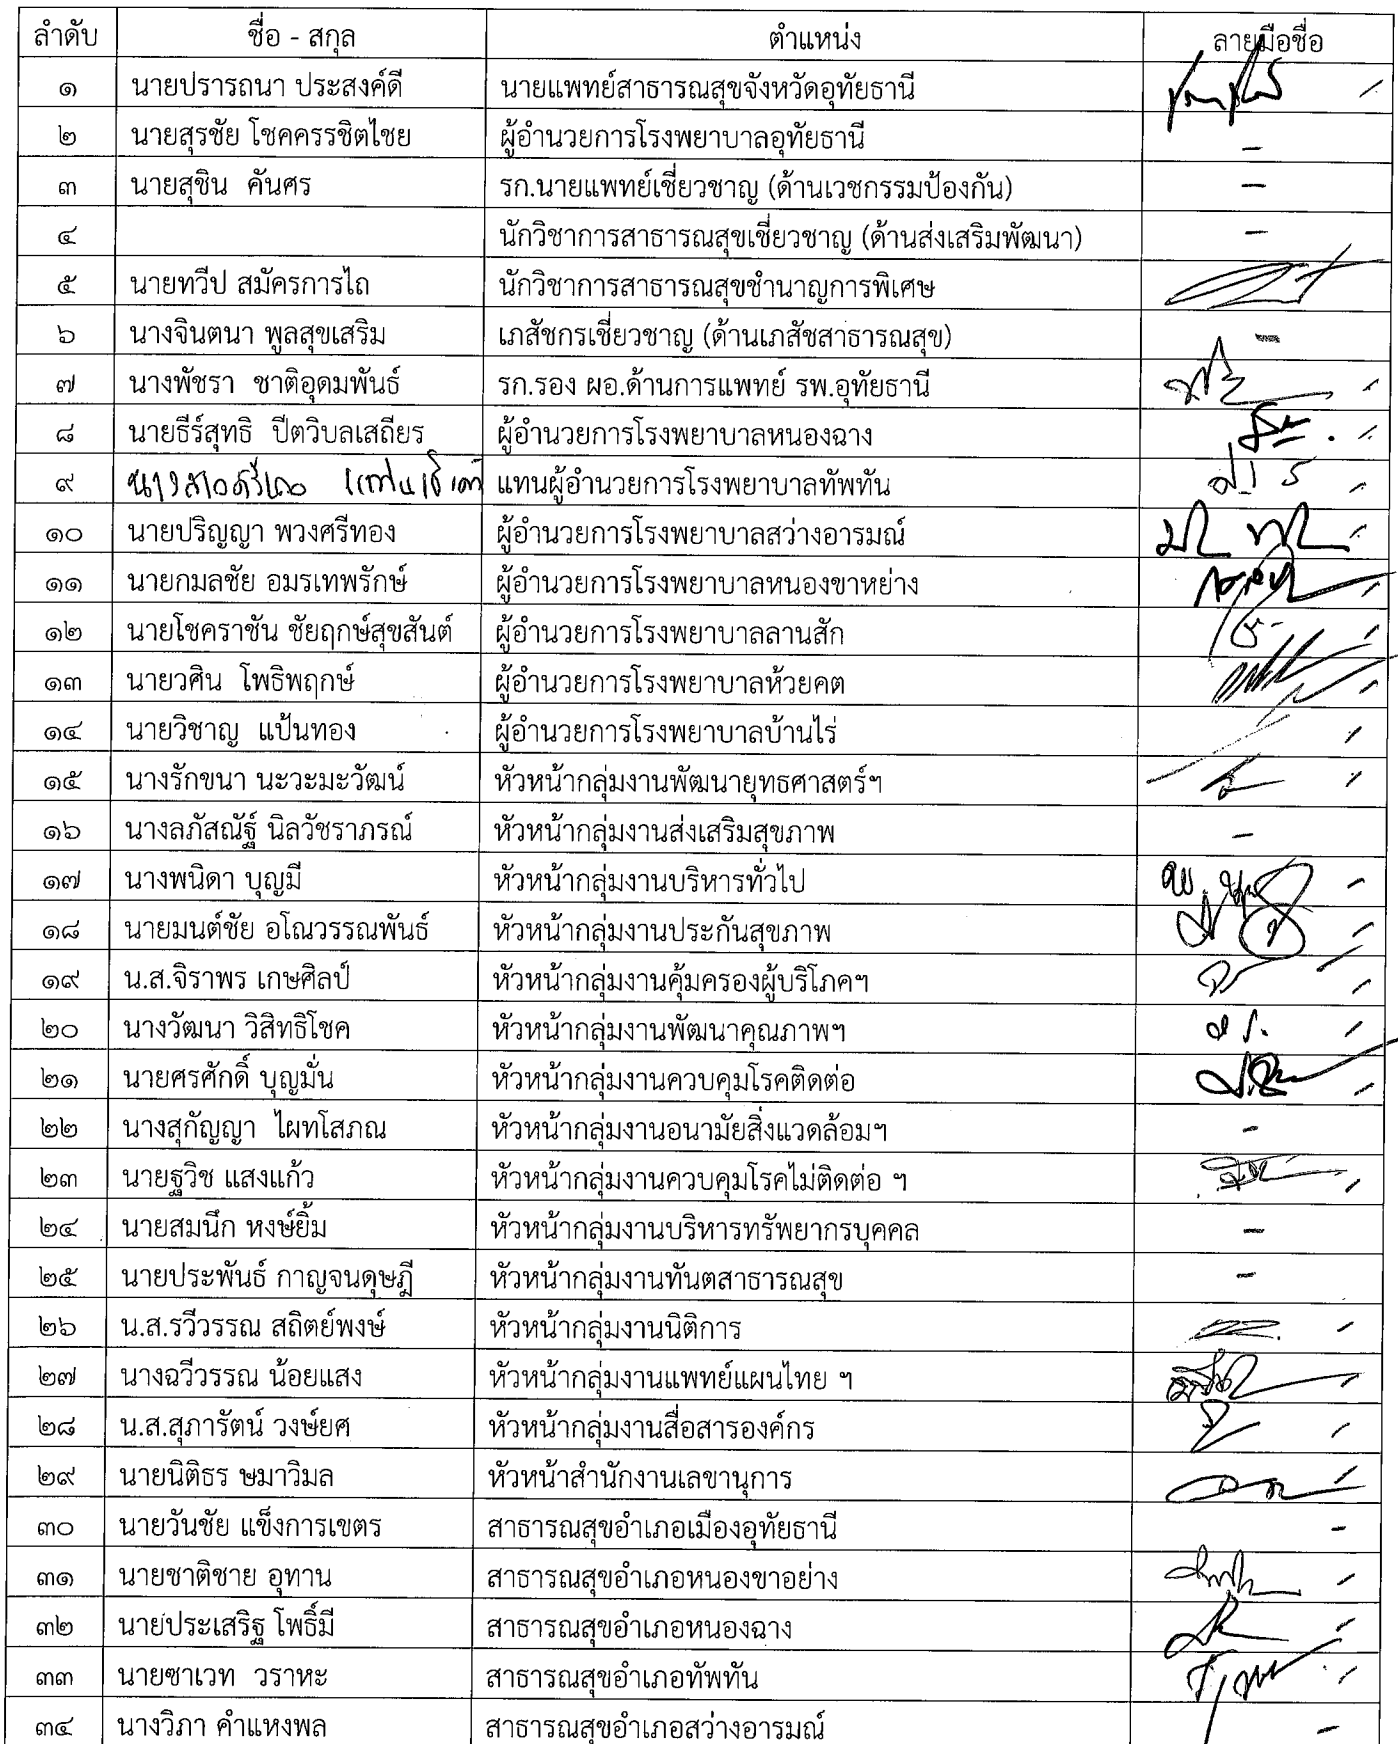 ลำดับ ชื่อ - สกุล ตำแหน่ง ลายมือชื่อ
๑ นายปรารถนา ประสงค์ดี นายแพทย์สาธารณสุขจังหวัดอุทัยธานี
๒ นายสุรชัย โชคครรชิตไชย ผู้อำนวยการโรงพยาบาลอุทัยธานี -
๓ นายสุชิน คันศร รก.นายแพทย์เชี่ยวชาญ (ด้านเวชกรรมป้องกัน) -
๔ นักวิชาการสาธารณสุขเชี่ยวชาญ (ด้านส่งเสริมพัฒนา) -
๕ นายทวีป สมัครการไถ นักวิชาการสาธารณสุขชำนาญการพิเศษ
๖ นางจินตนา พูลสุขเสริม เภสัชกรเชี่ยวชาญ (ด้านเภสัชสาธารณสุข) -
๗ นางพัชรา ชาติอุดมพันธ์ รก.รอง ผอ.ด้านการแพทย์ รพ.อุทัยธานี
๘ นายธีร์สุทธิ ปีตวิบลเสถียร ผู้อำนวยการโรงพยาบาลหนองฉาง
๙ นางสาว แทนผู้อำนวยการโรงพยาบาลทัพทัน
๑๐ นายปริญญา พวงศรีทอง ผู้อำนวยการโรงพยาบาลสว่างอารมณ์
๑๑ นายกมลชัย อมรเทพรักษ์ ผู้อำนวยการโรงพยาบาลหนองขาหย่าง
๑๒ นายโชคราชัน ชัยฤกษ์สุขสันต์ ผู้อำนวยการโรงพยาบาลลานสัก
๑๓ นายวศิน โพธิพฤกษ์ ผู้อำนวยการโรงพยาบาลห้วยคต
๑๔ นายวิชาญ แป้นทอง ผู้อำนวยการโรงพยาบาลบ้านไร่
๑๕ นางรักขนา นะวะมะวัฒน์ หัวหน้ากลุ่มงานพัฒนายุทธศาสตร์ฯ
๑๖ นางลภัสณัฐ์ นิลวัชราภรณ์ หัวหน้ากลุ่มงานส่งเสริมสุขภาพ -
๑๗ นางพนิดา บุญมี หัวหน้ากลุ่มงานบริหารทั่วไป
๑๘ นายมนต์ชัย อโณวรรณพันธ์ หัวหน้ากลุ่มงานประกันสุขภาพ
๑๙ น.ส.จิราพร เกษศิลป์ หัวหน้ากลุ่มงานคุ้มครองผู้บริโภคฯ
๒๐ นางวัฒนา วิสิทธิโชค หัวหน้ากลุ่มงานพัฒนาคุณภาพฯ
๒๑ นายศรศักดิ์ บุญมั่น หัวหน้ากลุ่มงานควบคุมโรคติดต่อ
๒๒ นางสุกัญญา ไผทโสภณ หัวหน้ากลุ่มงานอนามัยสิ่งแวดล้อมฯ -
๒๓ นายฐวิช แสงแก้ว หัวหน้ากลุ่มงานควบคุมโรคไม่ติดต่อ ฯ
๒๔ นายสมนึก หงษ์ยิ้ม หัวหน้ากลุ่มงานบริหารทรัพยากรบุคคล -
๒๕ นายประพันธ์ กาญจนดุษฎี หัวหน้ากลุ่มงานทันตสาธารณสุข -
๒๖ น.ส.รวีวรรณ สถิตย์พงษ์ หัวหน้ากลุ่มงานนิติการ
๒๗ นางฉวีวรรณ น้อยแสง หัวหน้ากลุ่มงานแพทย์แผนไทย ฯ
๒๘ น.ส.สุภารัตน์ วงษ์ยศ หัวหน้ากลุ่มงานสื่อสารองค์กร
๒๙ นายนิติธร ษมาวิมล หัวหน้าสำนักงานเลขานุการ
๓๐ นายวันชัย แข็งการเขตร สาธารณสุขอำเภอเมืองอุทัยธานี -
๓๑ นายชาติชาย อุทาน สาธารณสุขอำเภอหนองขาอย่าง
๓๒ นายประเสริฐ โพธิ์มี สาธารณสุขอำเภอหนองฉาง
๓๓ นายซาเวท วราหะ สาธารณสุขอำเภอทัพทัน
๓๔ นางวิภา คำแหงพล สาธารณสุขอำเภอสว่างอารมณ์ -